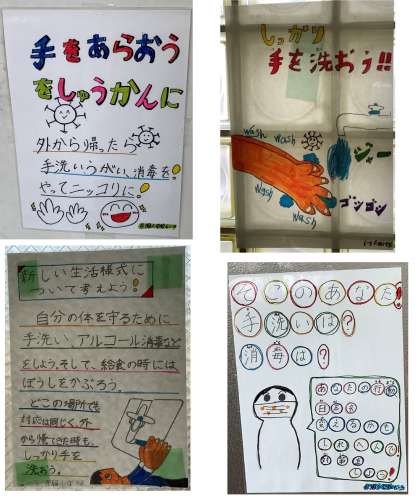 手をあらおう
をしゅうかんに
外から帰ったら
手洗いうがい、消毒を!
やってニッコリに!
しっかり
手を洗おう!!
wash
wash
wash
wash
ジャー
ゴシゴシ
新しい生活様式に
ついて考えよう!
自分の体を守るために
手洗い、アルコール消毒など
をしよう。そして、給食の時には
ぼうしをかぶろう。
どこの場所でも
対応は同じく、外
から帰てきた時も、
しっかり手を
洗おう。
そこのあなた!
手洗いは?
消毒は?
あなたの行動
自立を
支えるかも
しれへんで!
対策
しょう!